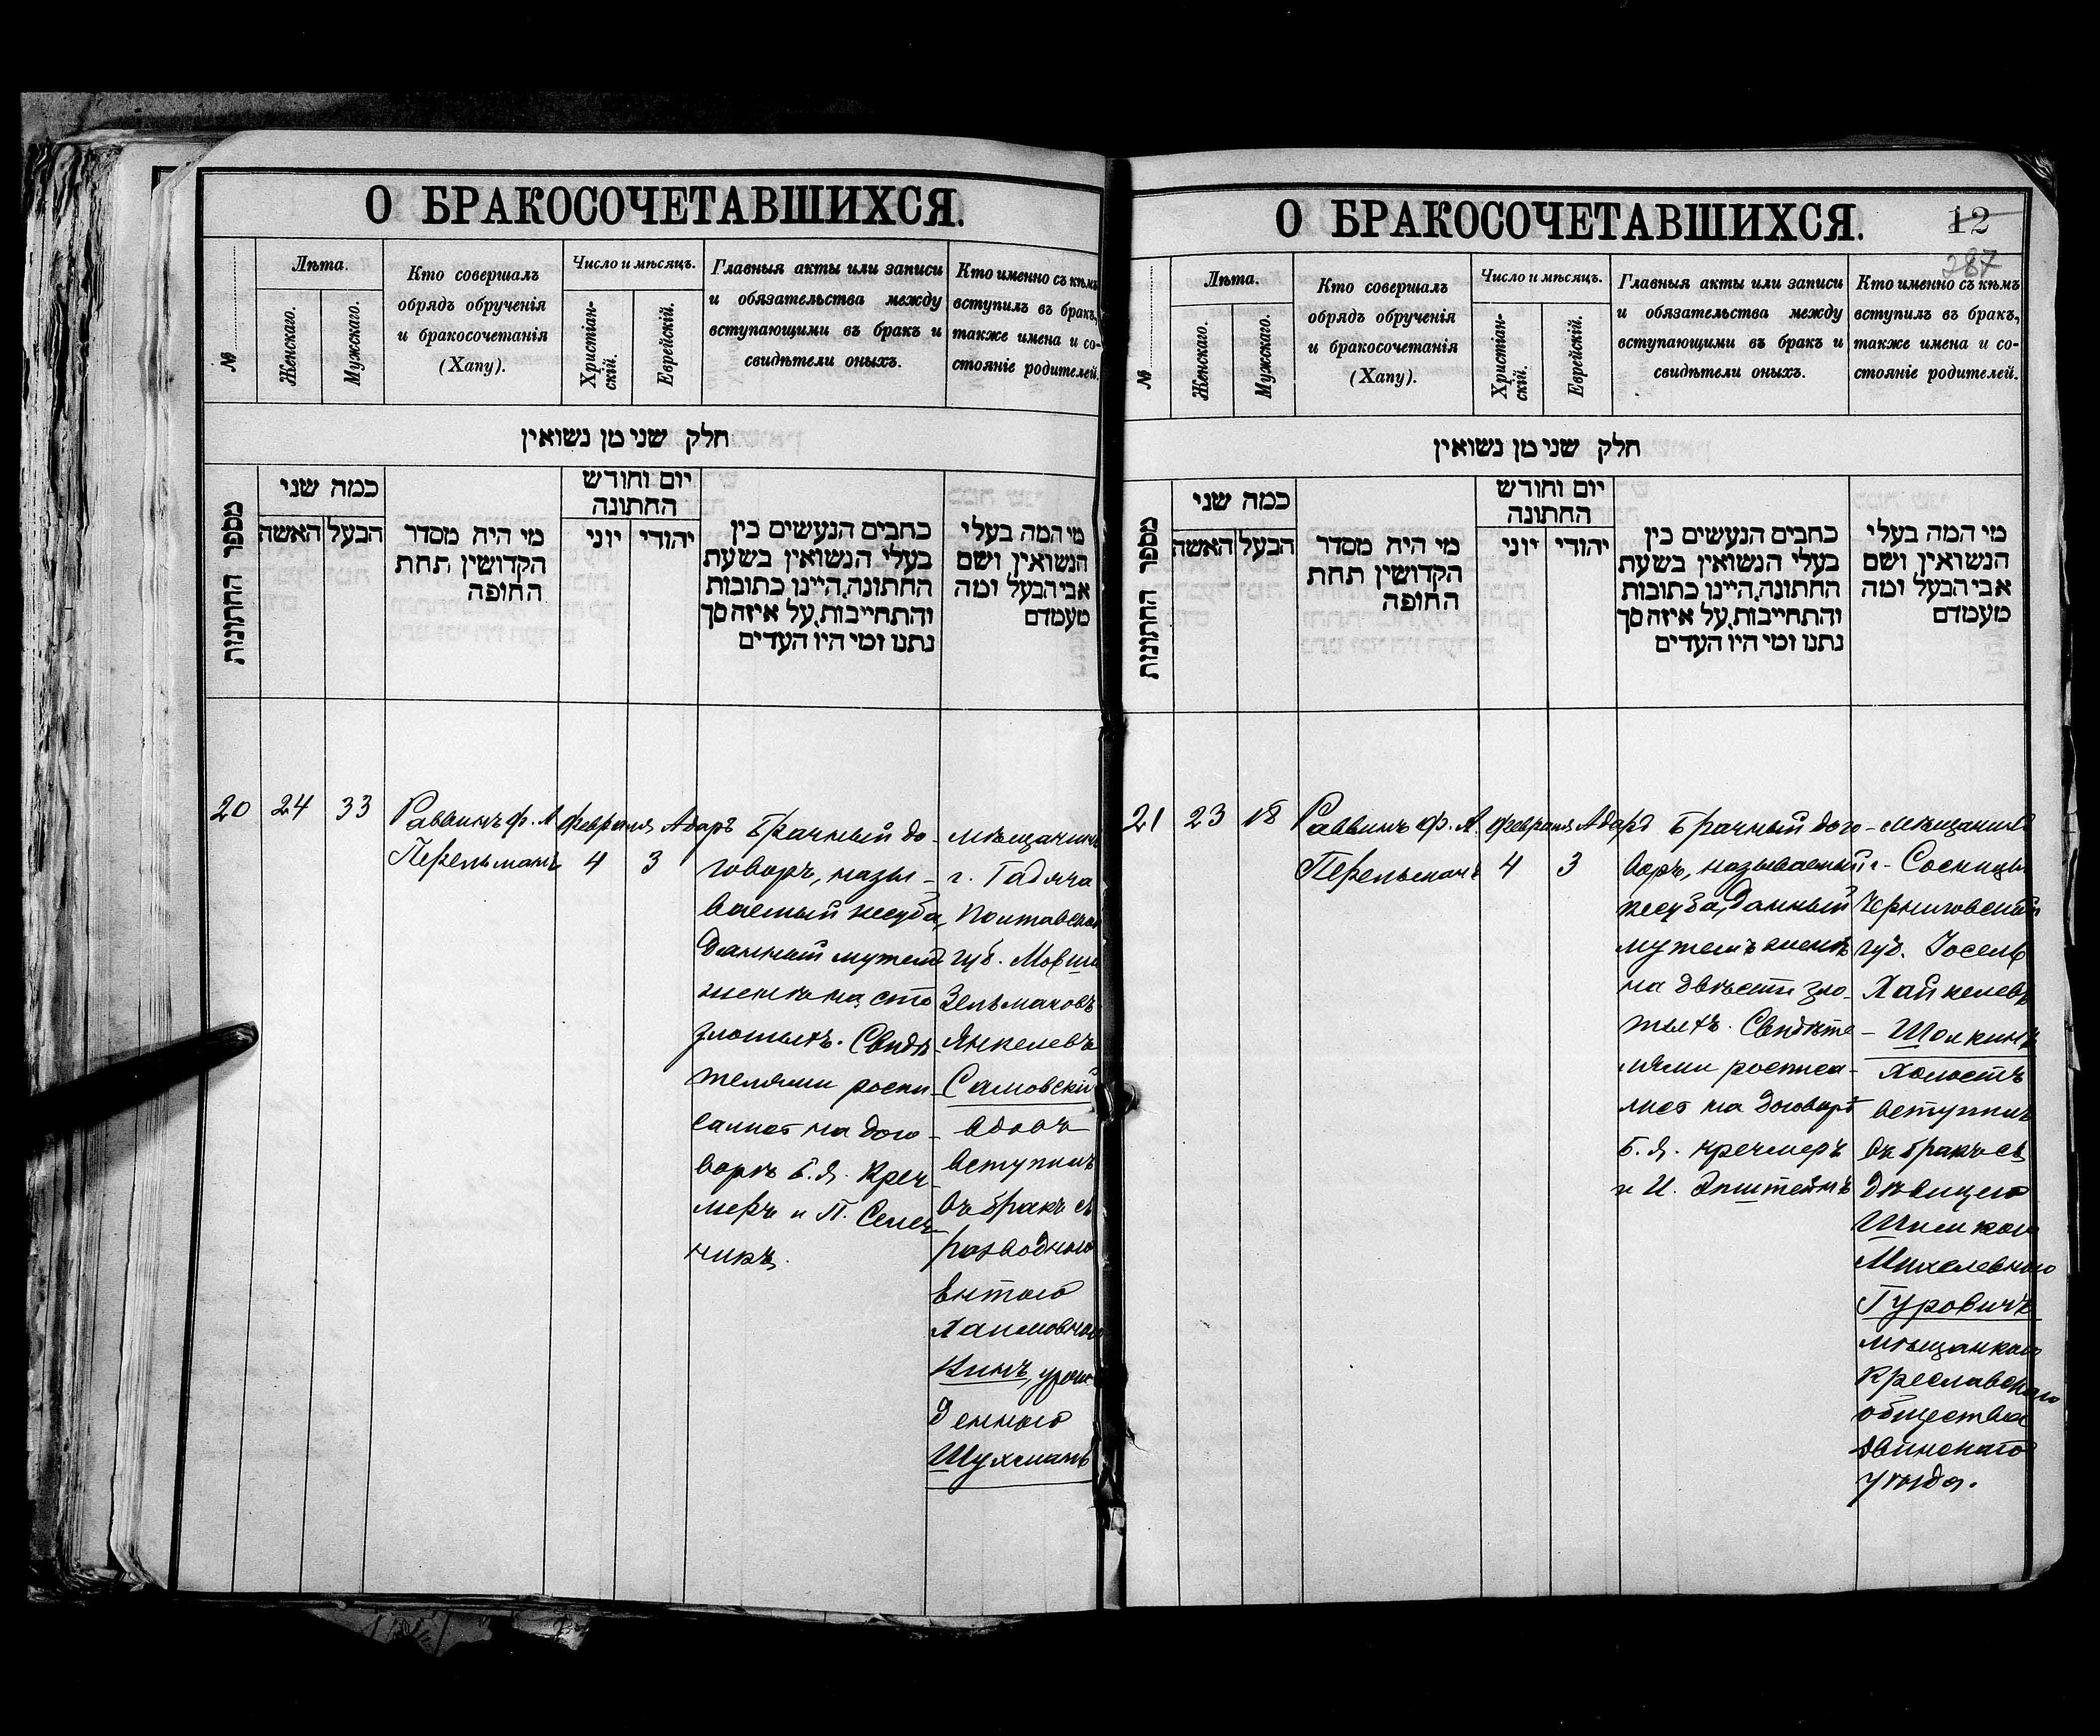 О БРАКОСОЧЕТАВШИХСЯ.
№
Лѣта.
Женскаго.
Мужскаго.
Кто совершалъ
обрядъ обрученія
и бракосочетанія
(Хапу).
Число и мѣсяцъ.
Христіан-
скій.
Еврейскій.
Главныя акты или записи
и обязательства между
вступающими въ бракъ и
свидѣтели оныхъ.
Кто именно съ кѣмъ
вступилъ въ бракъ,
также имена и со-
стояніе родителей.
חלק שני מן נשואין
מספר החתונות
כמה שני
האשה
הבעל
מי היה מסדר
הקדושין תחת
החופה
יום וחודש
החתונה
יוני
יהודי
כתבים הנעשים בין
בעלי הנשואין בשעת
החתונה, היינו כתובות
והתחייבות, על איזה סך
נתנו ומי היו העדים
מי המה בעלי
הנשואין ושם
אבי הבעל ומה
מעמדם
20
24
33
Раввинъ Ф. А
Перельманъ
Февраля
4
Адаръ
3
Брачный до-
говоръ, назы-
ваемый ксуба,
данный мужемъ
женѣ на сто
злотыхъ. Свидѣ-
телями роспи-
сались на дого-
ворѣ Б. Я. Креч-
меръ и П.
мѣщанинъ
г. Гадяча
Полтавской
губ. Мовша
Зельмановъ-
Янкелевъ
Самовскій
вдовъ
вступилъ
въ бракъ съ
разводною
Хаимовною
Кинъ, урож-
денною
Шухманъ
О БРАКОСОЧЕТАВШИХСЯ.
12
287
№
Лѣта.
Женскаго.
Мужскаго.
Кто совершалъ
обрядъ обрученія
и бракосочетанія
(Хапу).
Число и мѣсяцъ.
Христіан-
скій.
Еврейскій.
Главныя акты или записи
и обязательства между
вступающими въ бракъ и
свидѣтели оныхъ.
Кто именно съ кѣмъ
вступилъ въ бракъ,
также имена и со-
стояніе родителей.
חלק שני מן נשואין
מספר החתונות
כמה שני
האשה
הבעל
מי היה מסדר
הקדושין תחת
החופה
יום וחודש
החתונה
יוני
יהודי
כתבים הנעשים בין
בעלי הנשואין בשעת
החתונה, היינו כתובות
והתחייבות, על איזה סך
נתנו ומי היו העדים
מי המה בעלי
הנשואין ושם
אבי הבעל ומה
מעמדם
21
23
18
Раввинъ Ф. А.
Перельманъ
Февраля
4
Адаръ
3
Брачный дого-
воръ, называемый
ксуба, данный
мужемъ женѣ
на двѣсти зло-
тыхъ. Свидѣте-
лями росписа-
лись на договорѣ
Б. Я. Кречмеръ
и И. Эпштейнъ
мѣщанинъ
г. Сосницы
Черниговской
губ. Іосель
Хайкелевъ
Шолкинъ
холостъ
вступилъ
въ бракъ съ
дѣвицею
Михелевною
Гуровичъ
мѣщанкою
Креславскаго
общества
Двинскаго
уѣзда.